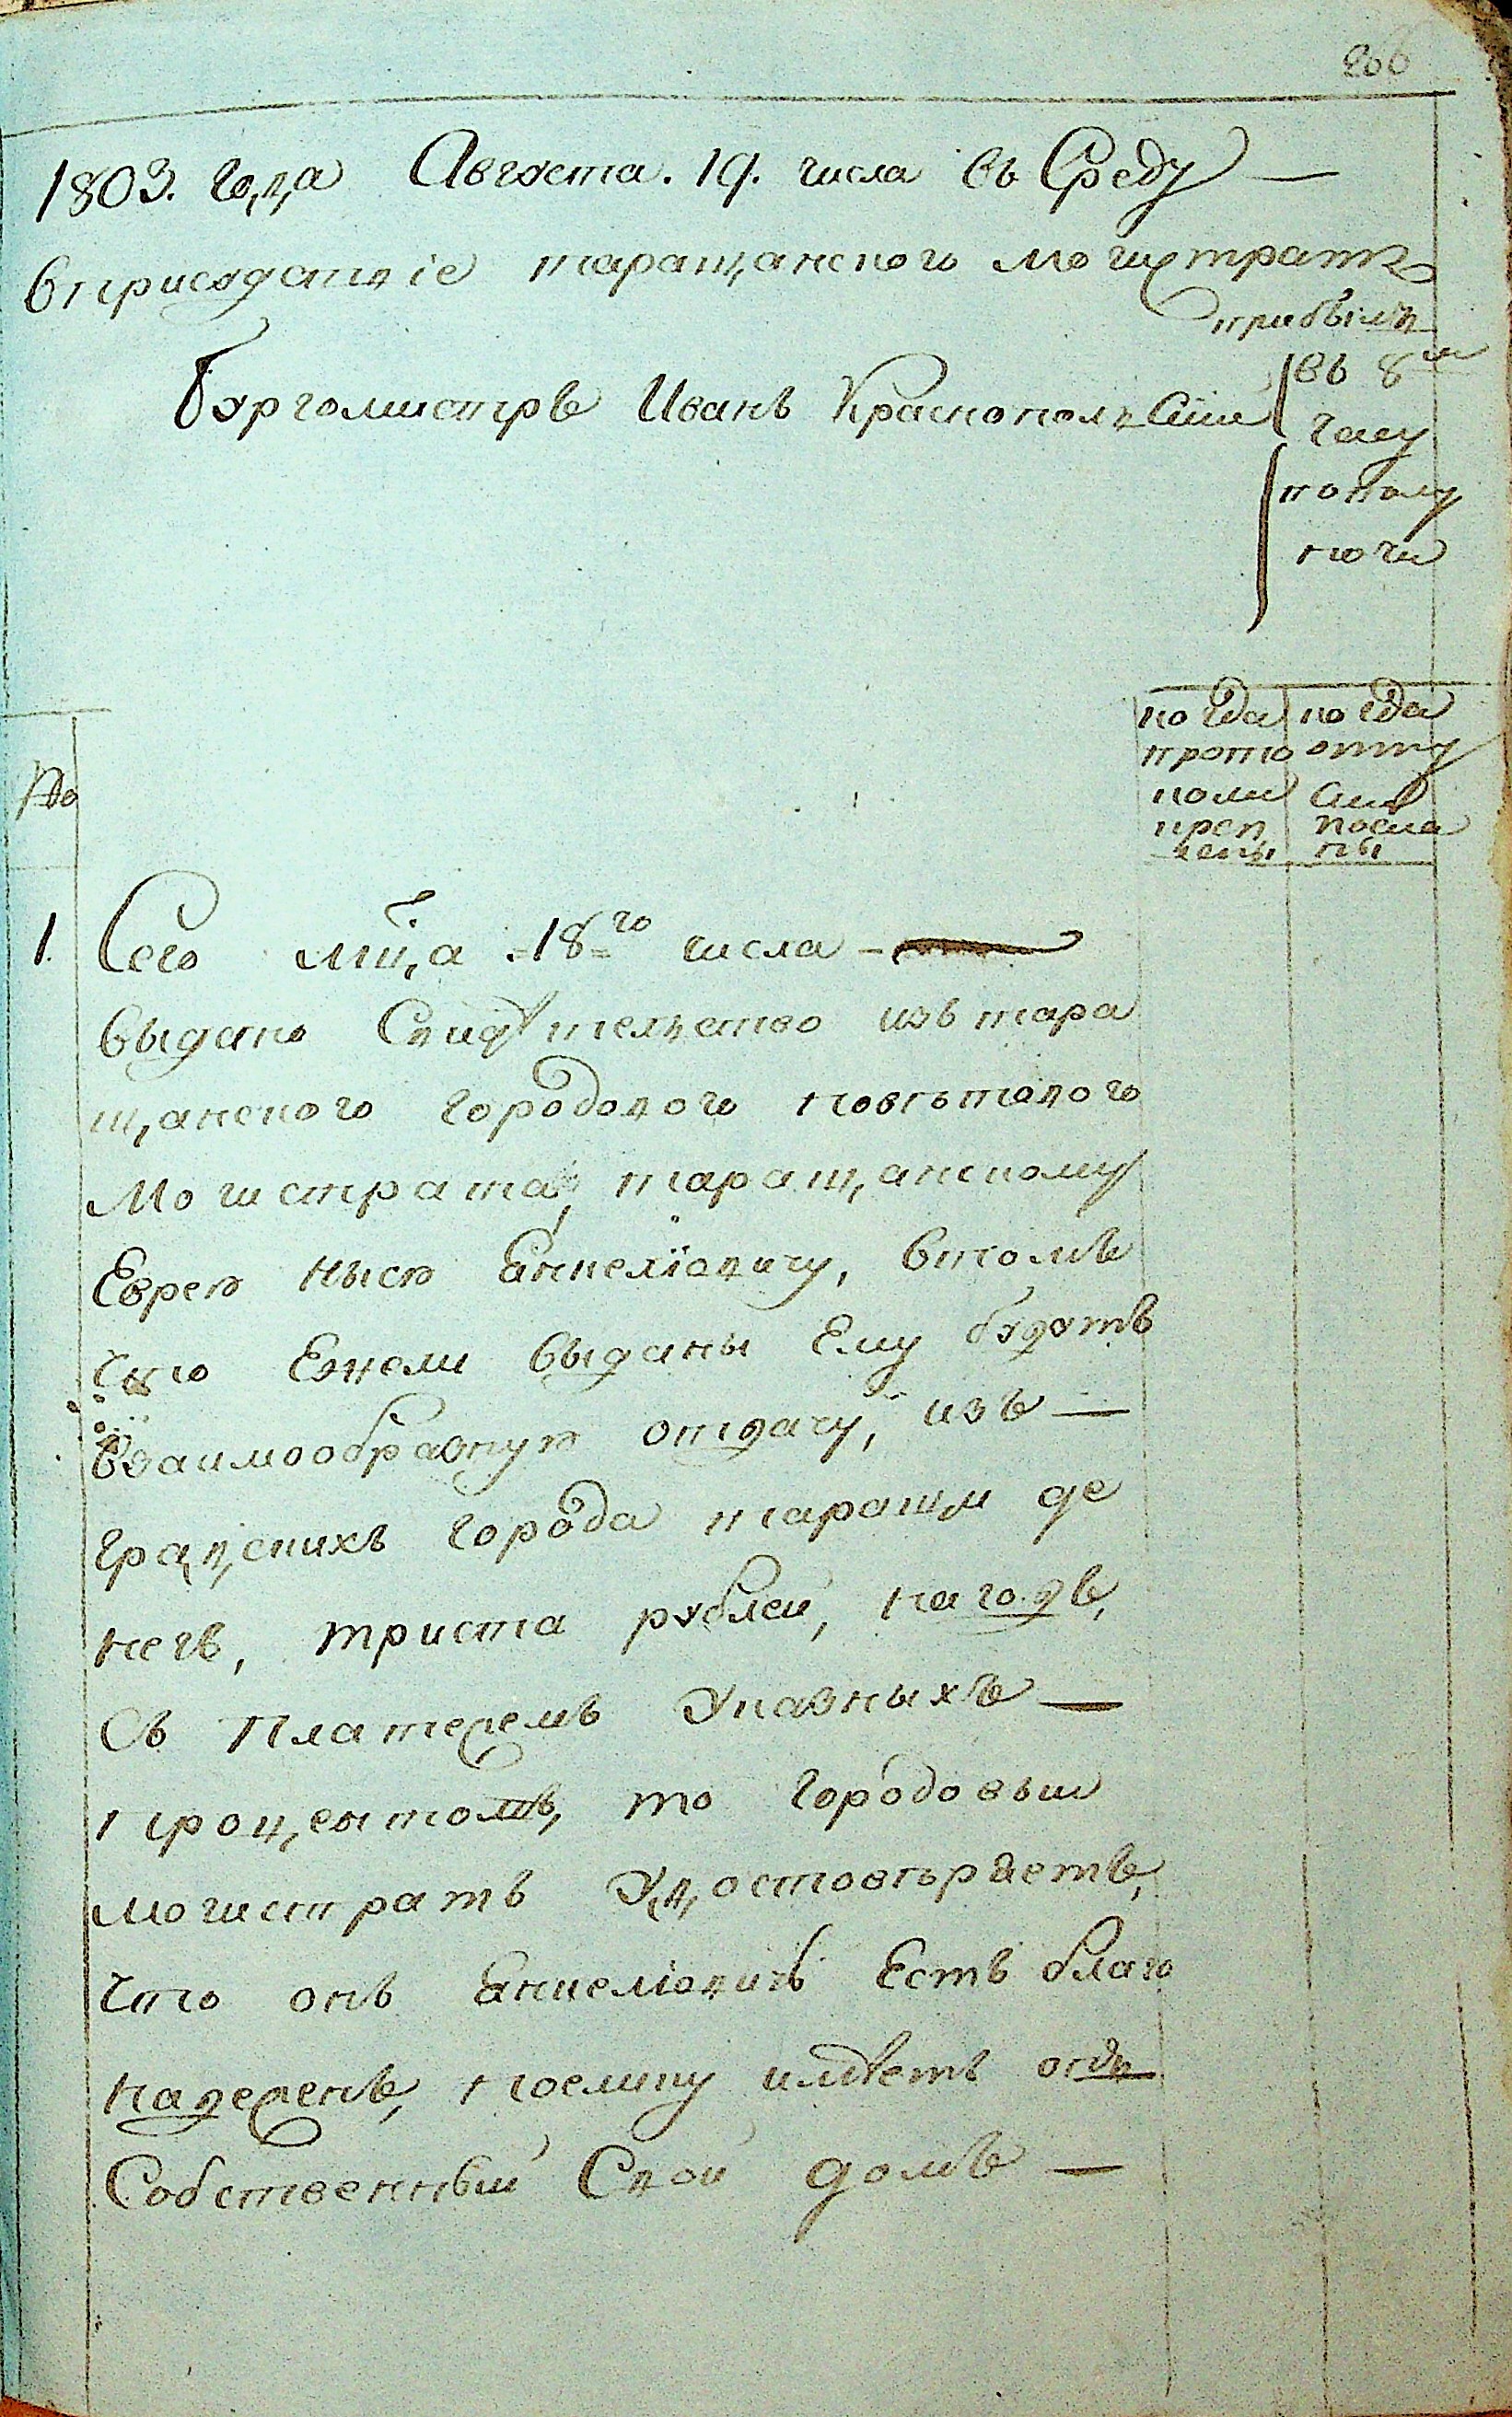 206
1803. Года Августа. 19. числа въ Среду —
вприсудствіе таращанского могистрата
прибылъ
Бургомистръ Иванъ Краснополский
въ 8 м
часу
пополу
ночи
когда когда
прото отпу
коли ски
креп посла
лены ны
№
1. Сего мц̃а =18=го числа —
выдано Свидѣтелство изъ тара
щанского городового повѣтового
Могистрата, таращанскому
Еврею Анкелювичу, втомъ
что Ежели выданы Ему будутъ
взаимообразную отдачу, изъ —
градскихъ города таращи де
негъ, триста рублей, нагодъ,
Съ Платежемъ Указныхъ —
процентовъ, то городовый
могистратъ Удостовѣряетъ,
что онъ Анкелювичъ Есть благо
надеженъ, поелику имѣетъ
Собственный Свой домъ —